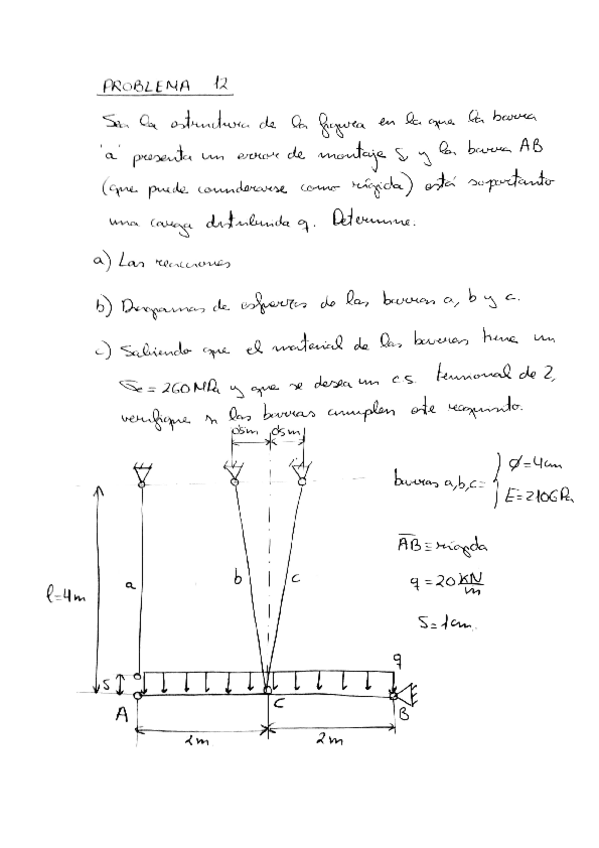 PROBLEMA 12
Sea la estructura de la figura en la que la barra
'a' presenta un error de montaje s, y la barra AB
(que puede considerarse como rígida) está soportanto
una carga distribuida q. Determine.
a) Las reacciones
b) Diagramas de esfuerzos de las barras a, b y c.
c) Sabiendo que el material de las barras tiene un
σe = 260 MPa y que se desea un c.s. tensional de 2,
verifique si las barras cumplen este requisito.
0'5m 0'5m
barras a,b,c = { Ø=4cm
E=210GPa
AB ≡ rígida
q = 20 KN/m
S=1cm.
l=4m
a
b
c
S
q
A
C
B
2m
2m